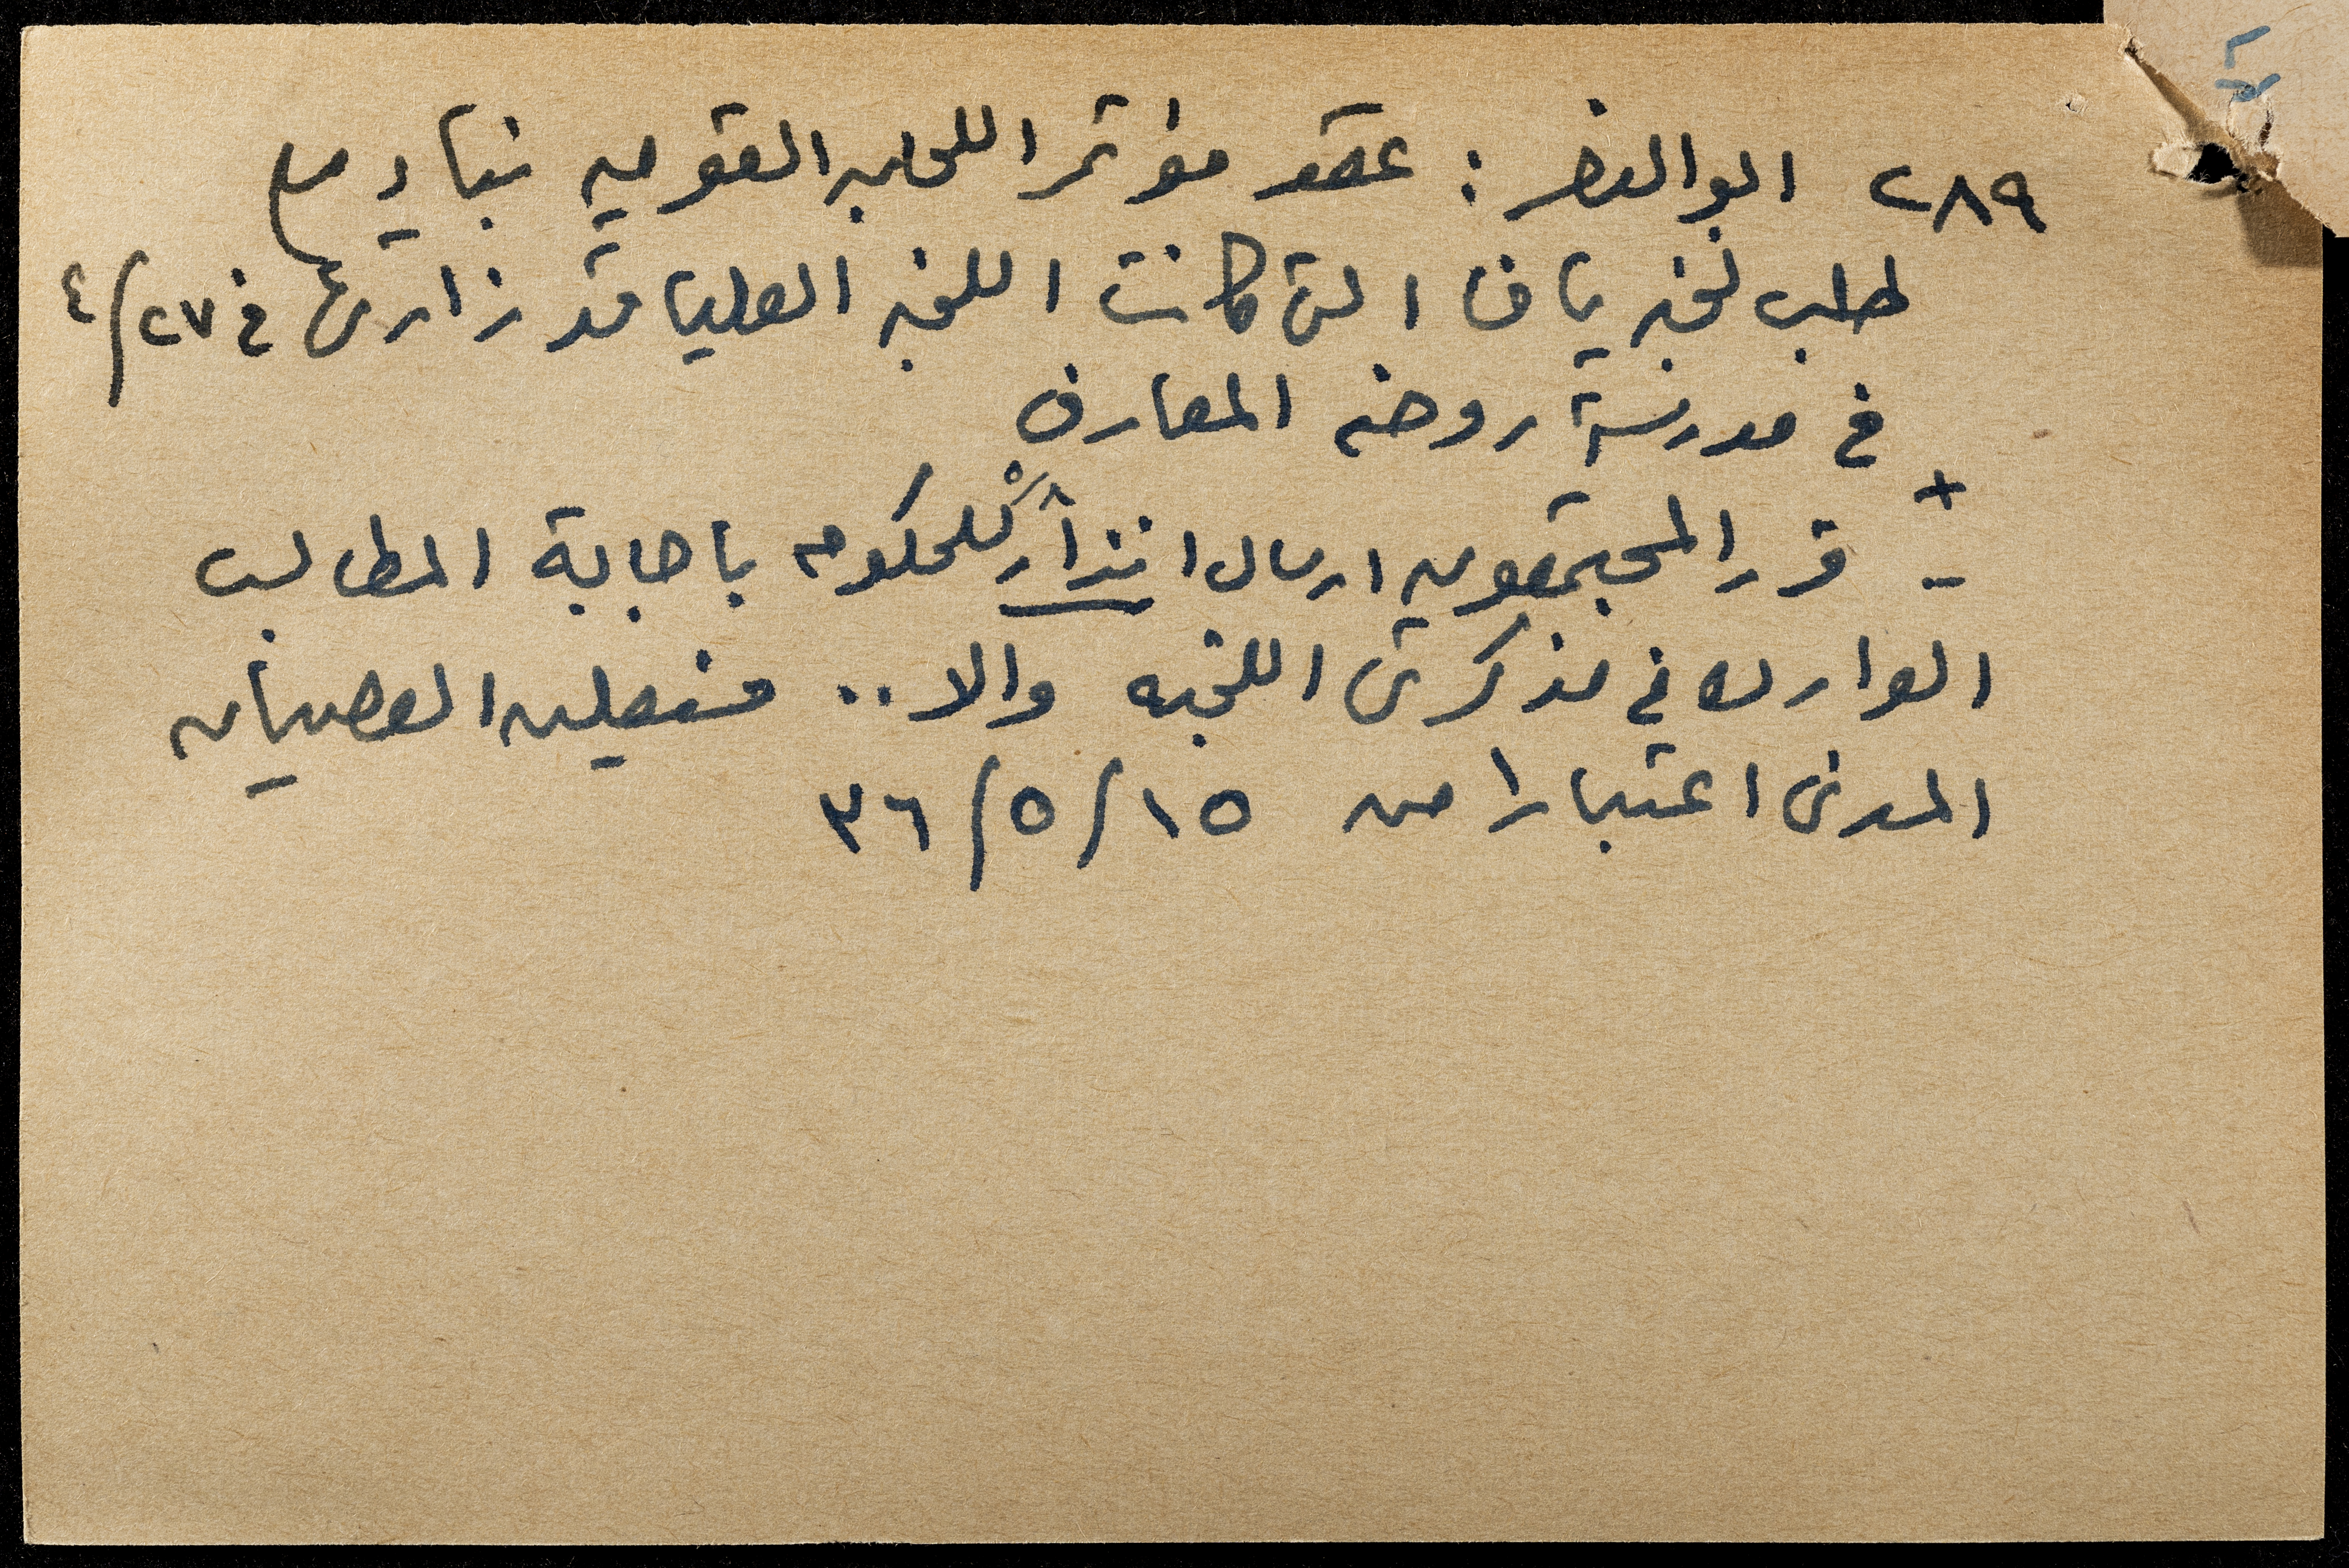 ٢٨٩ ابو النصر : عقد مؤتمر اللجان القوميه بناء على
طلب لجنه يافا التى كانت اللجنه العليا قد زارتها فى ٢٧/٤
فى مدرسة روضه المعارف
+
- قرر المجتمعون ارسال انذارٍ للحكومه باجابة المطالب
الوارده في مذكرتى اللجنه والا .. فتعلن العصيان
المدنى اعتبارا من ١٥/٥/٣٦